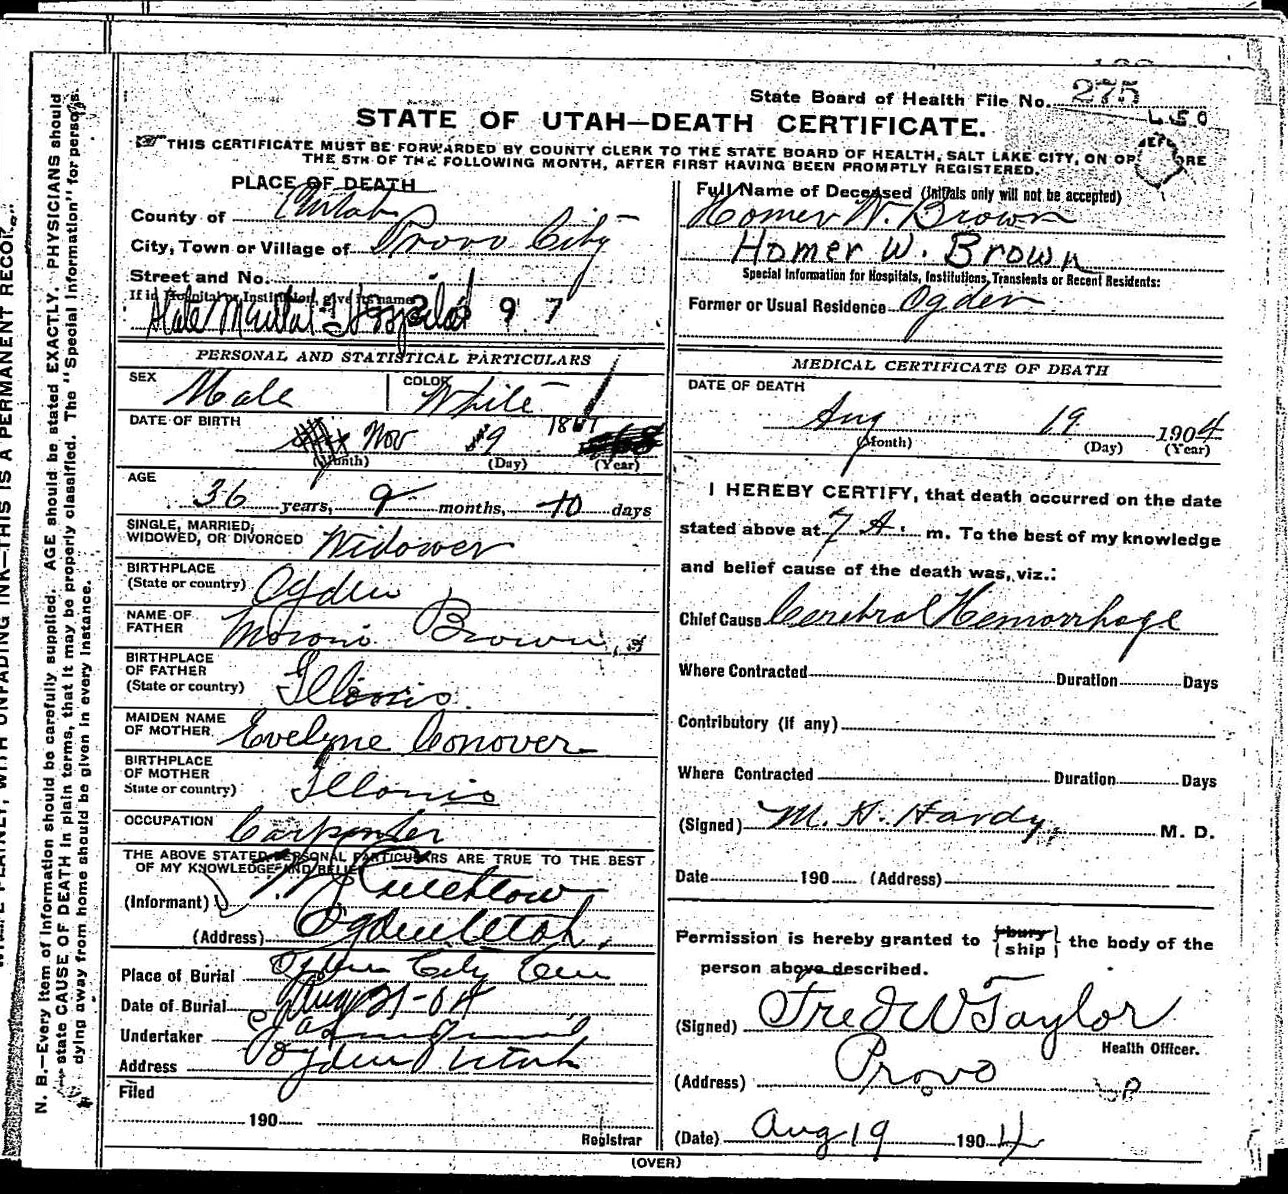 State Board of Health File No. 275
STATE OF UTAH—DEATH CERTIFICATE.
THIS CERTIFICATE MUST BE FORWARDED BY COUNTY CLERK TO THE STATE BOARD OF HEALTH, SALT LAKE CITY, ON OR BEFORE
THE 5TH OF THE FOLLOWING MONTH, AFTER FIRST HAVING BEEN PROMPTLY REGISTERED.
PLACE OF DEATH
County of Utah
City, Town or Village of Provo City
Street and No.
If in Hospital or Institution, give its name
State Mental Hospital 397
Full Name of Deceased (Initials only will not be accepted)
Homer W. Brown
Homer W. Brown
Special Information for Hospitals, Institutions, Transients or Recent Residents:
Former or Usual Residence Ogden
PERSONAL AND STATISTICAL PARTICULARS
SEX Male
COLOR White
DATE OF BIRTH Nov 9 1867
(Month) (Day) (Year)
AGE
36 years, 9 months, 10 days
SINGLE, MARRIED,
WIDOWED, OR DIVORCED Widower
BIRTHPLACE
(State or country) Ogden
NAME OF
FATHER Moroni Brown
BIRTHPLACE
OF FATHER
(State or country) Illonis
MAIDEN NAME
OF MOTHER Evelyne Conover
BIRTHPLACE
OF MOTHER
State or country) Illonis
OCCUPATION Carpenter
THE ABOVE STATED PERSONAL PARTICULARS ARE TRUE TO THE BEST
OF MY KNOWLEDGE AND BELIEF
(Informant)
(Address) Ogden Utah.
Place of Burial Ogden City Cem
Date of Burial Aug 21-04
Undertaker
Address Ogden Utah
Filed
190
Registrar
MEDICAL CERTIFICATE OF DEATH
DATE OF DEATH
Aug 19 1904
(Month) (Day) (Year)
I HEREBY CERTIFY, that death occurred on the date
stated above at 7 A. m. To the best of my knowledge
and belief cause of the death was, viz.:
Chief Cause Cerebral Hemorrhage
Where Contracted Duration Days
Contributory (If any)
Where Contracted Duration Days
(Signed) M. H. Hardy, M. D.
Date 190 (Address)
Permission is hereby granted to {bury ship} the body of the
person above described.
(Signed) Fred W Taylor
Health Officer.
(Address) Provo
(Date) Aug 19 1904
(OVER)
N. B.—Every item of information should be carefully supplied. AGE should be stated EXACTLY. PHYSICIANS should
state CAUSE OF DEATH in plain terms, that it may be properly classified. The "Special Information" for persons
dying away from home should be given in every instance.
WITH UNFADING INK—THIS IS A PERMANENT RECORD